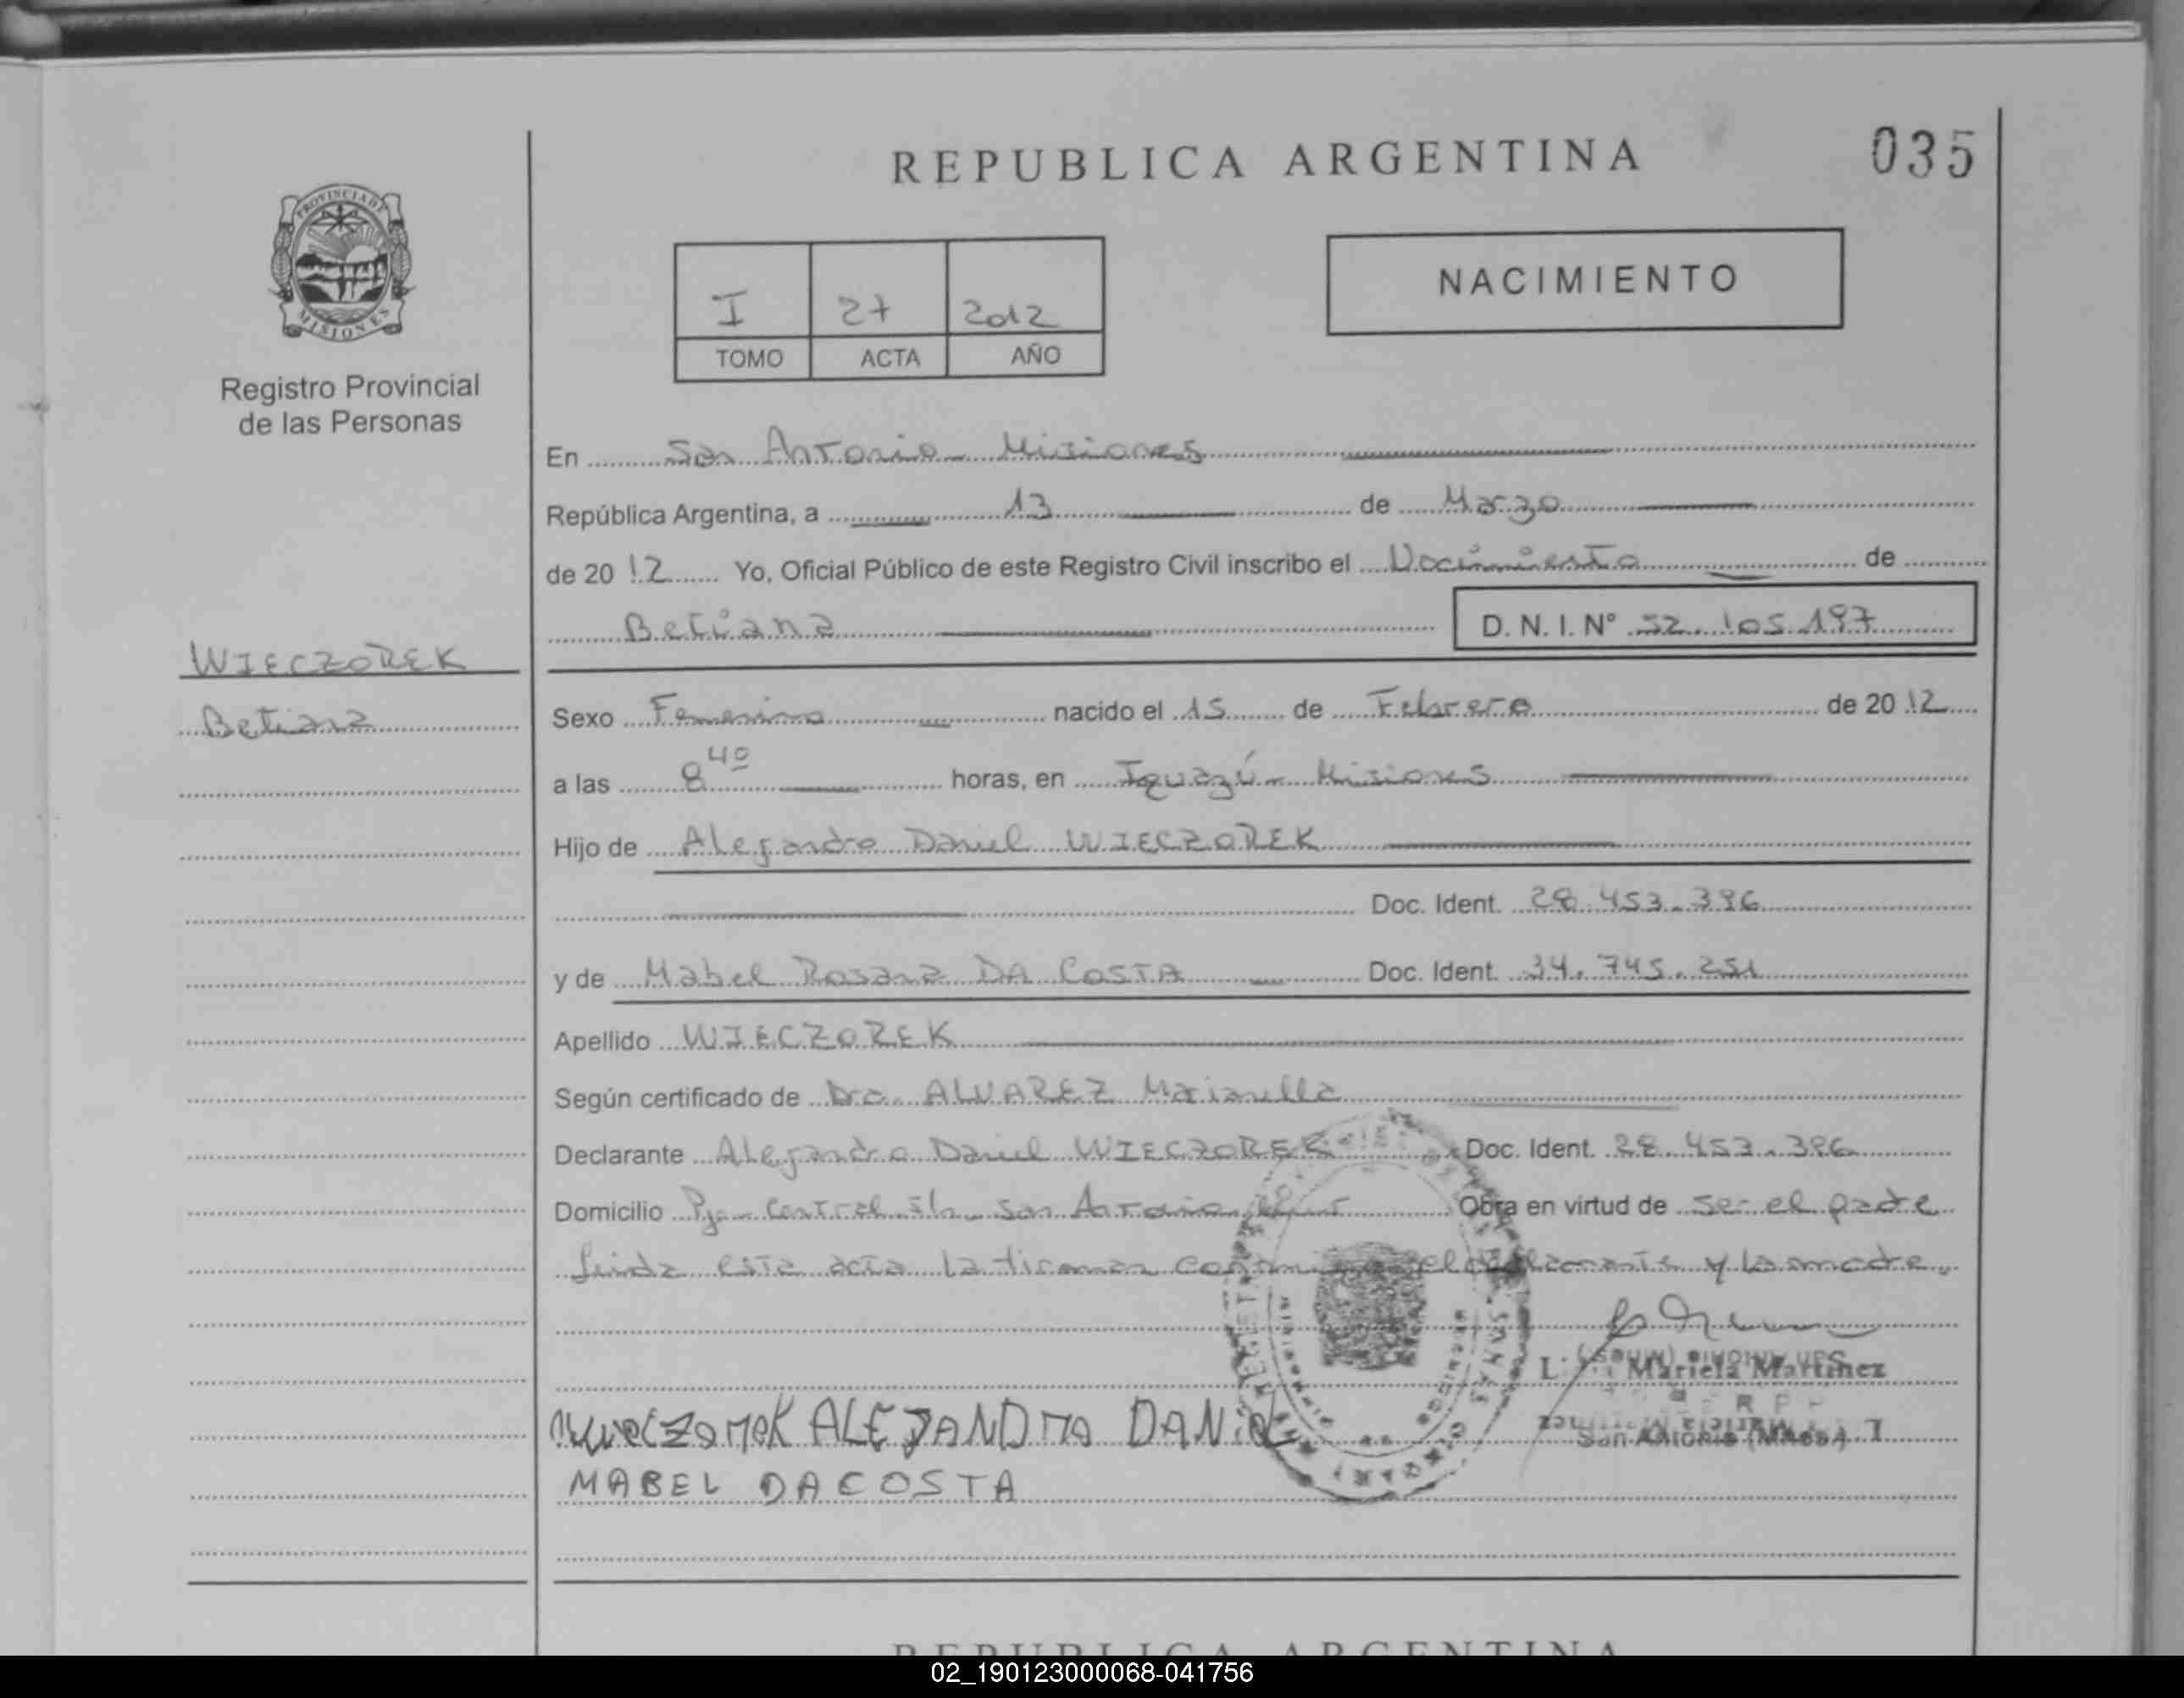 REPUBLICA ARGENTINA
035
PROVINCIA DE
MISIONES
Registro Provincial
de las Personas
I 27 2012
TOMO ACTA AÑO
NACIMIENTO
En San Antonio Misiones
República Argentina, a 13 de Marzo
de 2012 Yo, Oficial Público de este Registro Civil inscribo el Nacimiento de
Betiana D. N. I. N° 52.105.197
WIECZOREK
Betiana
Sexo Femenino nacido el 15 de Febrero de 2012
a las 8 40 horas, en Iguazú Misiones
Hijo de Alejandro Daniel WIECZOREK
Doc. Ident. 28.453.396
y de Mabel Rosana DA COSTA Doc. Ident. 34.745.251
Apellido WIECZOREK
Según certificado de Dra. ALVAREZ
Declarante Alejandro Daniel WIECZOREK Doc. Ident. 28.453.396
Domicilio Pje. Central s/n San Antonio Obra en virtud de ser el padre
Leida esta acta la firman el declarante y la madre.
Mariela Martinez
San Antonio (Mnes)
ALEJANDRO DANIEL
MABEL DACOSTA
REPUBLICA ARGENTINA
02_190123000068-041756